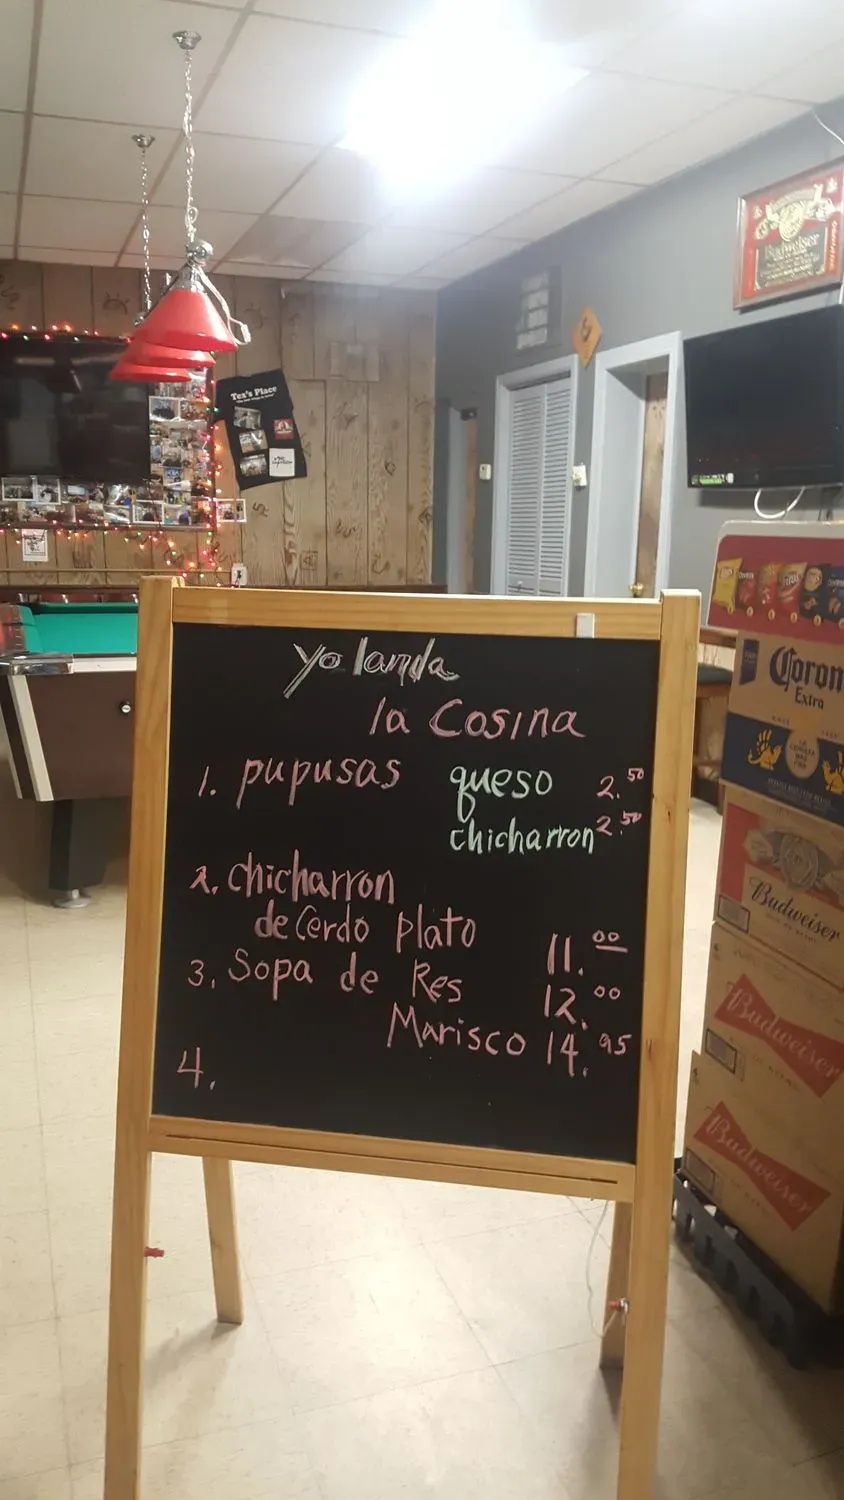 Budweiser
Tex's Place
yolanda
la Cosina
1. pupusas queso 2.50
chicharron 2.50
2. chicharron
de Cerdo plato 11.00
3. Sopa de Res 12.00
Marisco 14.95
4.
Corona
Extra
Budweiser
Budweiser
Budweiser